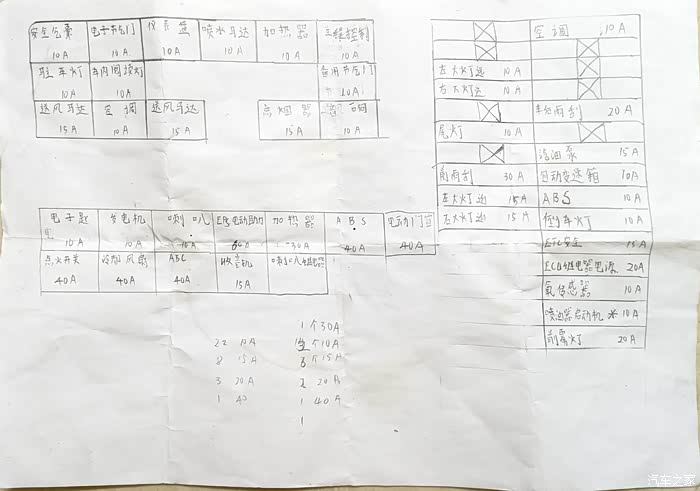 安全气囊 电子节气门 仪表盘 喷水马达 加热器
10A 10A 10A 10A 10A 10A
驻车灯 车内阅读灯 备用节气门
10A 10A 10A
送风马达 空调 送风马达 点烟器
15A 10A 15A 15A 10A
空调 10A
左大灯远 10A
右大灯远 10A
雨刮 20A
尾灯 10A
汽油泵 15A
前雨刮 30A 自动变速箱 10A
左大灯近 15A ABS 10A
右大灯近 15A 倒车灯 10A
15A
ECU继电器电源 20A
氧传感器 10A
喷油器启动机 * 10A
前雾灯 20A
电子匙 发电机 喇叭 EPS电动助力 加热器 ABS 电动门窗
10A 10A 10A 30A 40A 40A
点火开关 冷却风扇 ABC 收音机 喇叭继电器
40A 40A 40A 15A
1个30A
22 10A 个10A
8 15A 个15A
3 20A 2 20A
1 40 1 40A
1
汽车之家